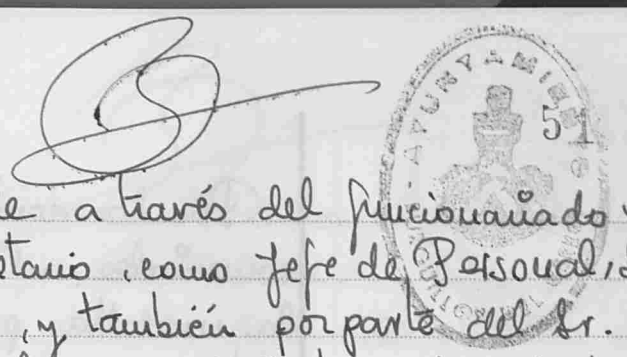 AYUNTAMIEN
51
e a través del funcionariado
etario, como Jefe de Personal,
, y también por parte del Sr.